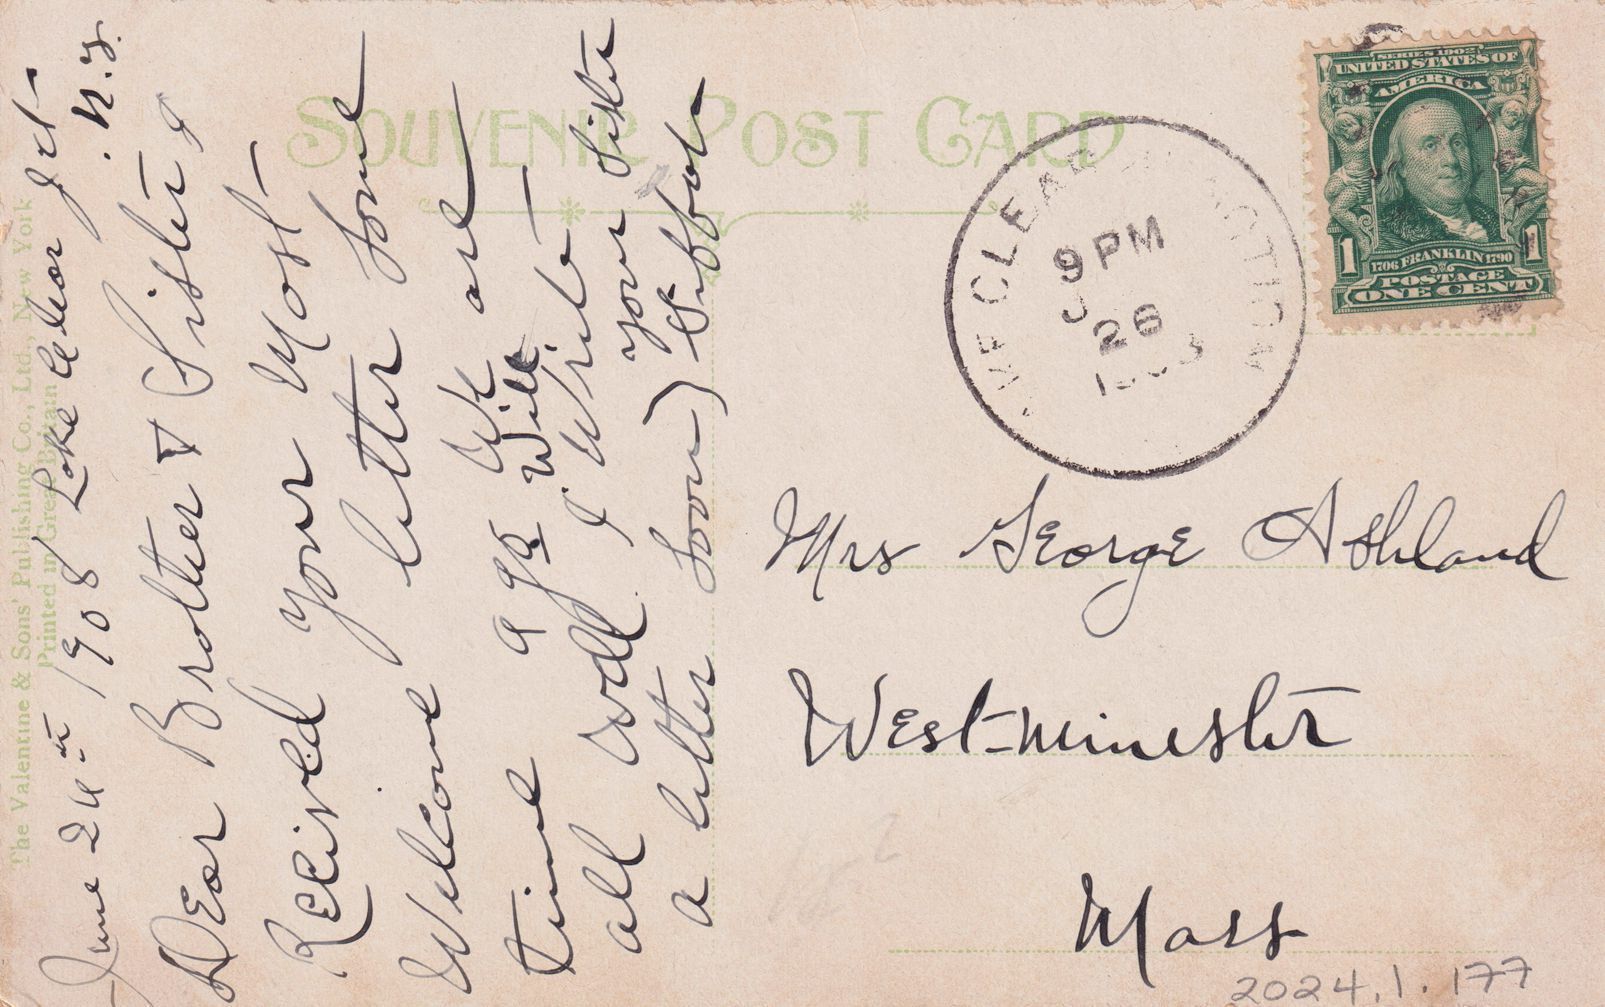 SOUVENIR POST CARD
The Valentine & Sons' Publishing Co., Ltd., New York
Printed in Great Britain
June 26th 1908 Lake Clear Jct. N.Y.
Dear Brother & Sister
Recieved your Most
Welcome letter Some
time ago We are
all Well Will
I Write
a letter Soon) your Sister
SERIES 1902
UNITED STATES OF
AMERICA
1 1
1706 FRANKLIN 1790
POSTAGE
ONE CENT
CLEAR JUNCTION
9 PM
26
1908
Mrs George Ashland
West-minester
Mass
2024.1.177